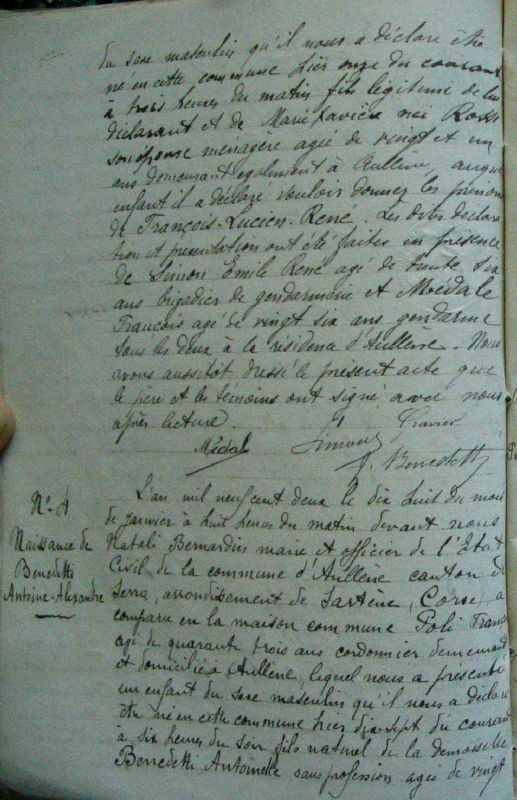 du sexe masculin qu'il nous a déclaré être
né en cette commune hier onze du courant
à trois heures du matin fils légitime de lui
déclarant et de Marie Xavière née
son épouse ménagère agée de vingt et un
ans demeurant également à Aullène, auquel
enfant il a déclaré vouloir donner les prénoms
de François-Lucien-René. Les dites déclara
tion et présentation ont été faites en présence
de Simon Emile René agé de trente six
ans brigadier de gendarmerie et
François agé de vingt six ans gendarme
tous les deux à la résidence d'Aullène. Nous
avons aussitôt dressé le présent acte que
le père et les témoins ont signé avec nous
après lecture.
Simon
Benedetti
N° 4
Naissance de
Benedetti
Antoine-Alexandre
L'an mil neuf cent deux le dix huit du mois
de janvier à huit heures du matin devant nous
Natali Bernardin maire et officier de l'Etat
Civil de la commune d'Aullène canton de
Serra, arrondissement de Sartène, (Corse) a
comparu en la maison commune Poli
agé de quarante trois ans cordonnier demeurant
et domicilié à Aullène, lequel nous a présenté
un enfant du sexe masculin qu'il nous a déclaré
être né en cette commune hier dix sept du courant
à six heures du soir, fils naturel de la demoiselle
Benedetti Antoinette sans profession agée de vingt